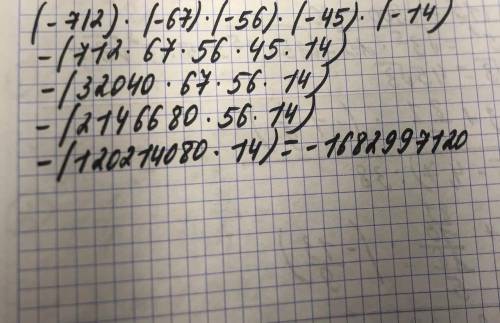 (-712) · (-67) · (-56) · (-45) · (-14)
-(712 · 67 · 56 · 45 · 14)
-(32040 · 67 · 56 · 14)
-(2146680 · 56 · 14)
-(120214080 · 14) = -1682997120